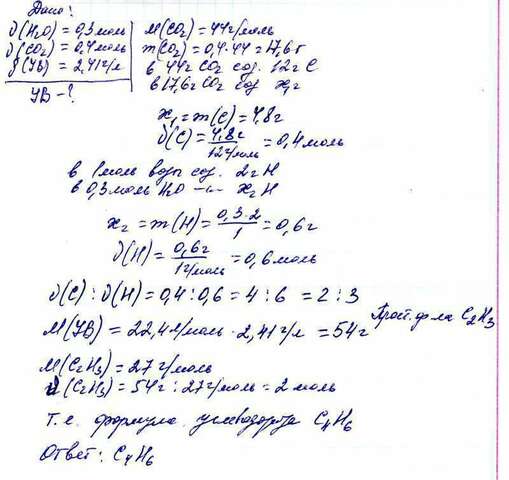 Дано:
ν(H₂O) = 0,3 моль
ν(CO₂) = 0,4 моль
ρ(УВ) = 2,41 г/л
УВ - ?
M(CO₂) = 44 г/моль
m(CO₂) = 0,4·44 = 17,6 г
в 44г CO₂ сод. 12г C
в 17,6г CO₂ сод x₁г
x₁ = m(C) = 4,8г
ν(C) = 4,8г / 12г/моль = 0,4 моль
в 1 моль воды сод. 2г H
в 0,3 моль H₂O –"– x₂ H
x₂ = m(H) = 0,3·2 / 1 = 0,6г
ν(H) = 0,6г / 1г/моль = 0,6 моль
ν(C) : ν(H) = 0,4 : 0,6 = 4 : 6 = 2 : 3
Прост. ф-ла C₂H₃
M(УВ) = 22,4 л/моль · 2,41 г/л = 54г
M(C₂H₃) = 27 г/моль
(C₂H₃) = 54г : 27г/моль = 2 моль
т.е. формула углеводорода C₄H₆
Ответ: C₄H₆